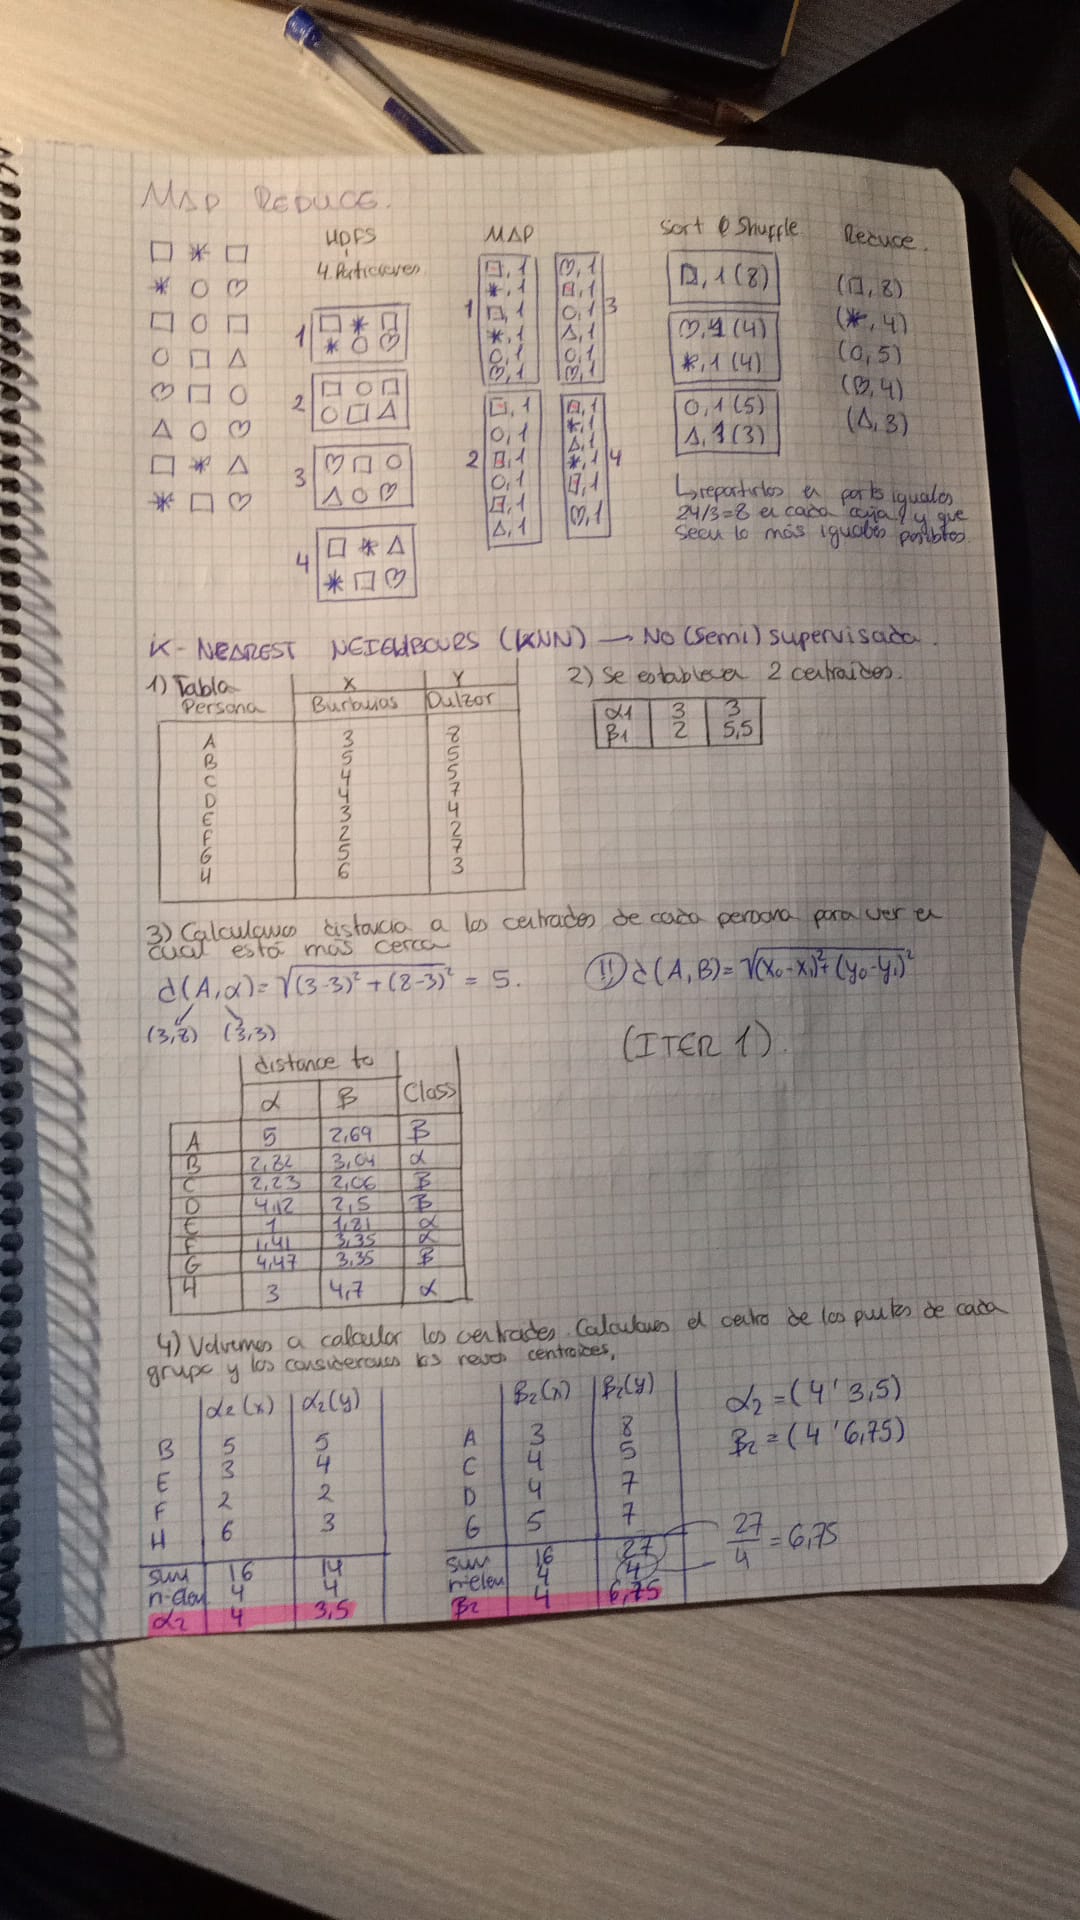 MAP REDUCE.
□ * □
* ○ ♡
□ ○ □
○ □ △
♡ □ ○
△ ○ ♡
□ * △
* □ ♡
HDFS
4 Particiones
1 □ * □
* ○ ♡
2 □ ○ □
○ □ △
3 ♡ □ ○
△ ○ ♡
4 □ * △
* □ ♡
MAP
1
□, 1
*, 1
□, 1
*, 1
○, 1
♡, 1
3
♡, 1
□, 1
○, 1
△, 1
○, 1
♡, 1
2
□, 1
○, 1
□, 1
○, 1
□, 1
△, 1
4
□, 1
*, 1
△, 1
*, 1
□, 1
♡, 1
Sort & Shuffle
□, 1 (8)
♡, 1 (4)
*, 1 (4)
○, 1 (5)
△, 1 (3)
Reduce.
(□, 8)
(*, 4)
(○, 5)
(♡, 4)
(△, 3)
↳ repartirlos en partes iguales
24/3=8 en cada caja y que
sean lo más iguales posibles.
K-NEAREST NEIGHBOURS (KNN) → No (semi) supervisada.
1) Tabla
X Y
Persona Burbujas Dulzor
A 3 8
B 5 5
C 4 5
D 4 7
E 3 4
F 2 2
G 5 7
H 6 3
2) Se establecen 2 centroides.
α1 3 3
β1 2 5,5
3) Calculamos distancia a los centrades de cada persona para ver en
cual está más cerca
d(A,α)= √(3-3)² + (8-3)² = 5.
(3,8) (3,3)
(!!) d(A,B)= √(x₀-x₁)²+(y₀-y₁)²
(ITER 1).
distance to
α β Class
A 5 2,69 β
B 2,82 3,04 α
C 2,23 2,06 β
D 4,12 2,5 β
E 1 1,81 α
F 1,41 3,35 α
G 4,47 3,35 β
H 3 4,7 α
4) Volvemos a calcular los centrades. Calculamos el centro de los puntos de cada
grupo y los consideramos los nuevos centroides,
α₂(x) α₂(y)
B 5 5
E 3 4
F 2 2
H 6 3
sum 16 14
n-elem 4 4
α₂ 4 3,5
β₂(x) β₂(y)
A 3 8
C 4 5
D 4 7
G 5 7
sum 16 27
n-elem 4 4
β₂ 4 6,75
α₂ = (4 ' 3,5)
β₂ = (4 ' 6,75)
27/4 = 6,75